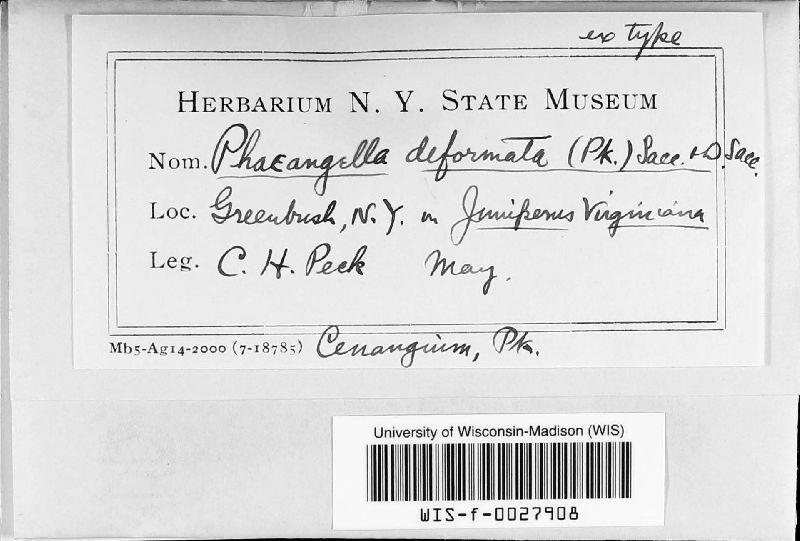 ex type
HERBARIUM N. Y. STATE MUSEUM
Nom. Phaeangella deformata (Pk.) Sacc. & D. Sacc.
Loc. Greenbush, N. Y. on Juniperus Virginiana
Leg. C. H. Peck May.
Mb5-Ag14-2000 (7-18785) Cenangium, Pk.
University of Wisconsin-Madison (WIS)
WIS-f-0027908